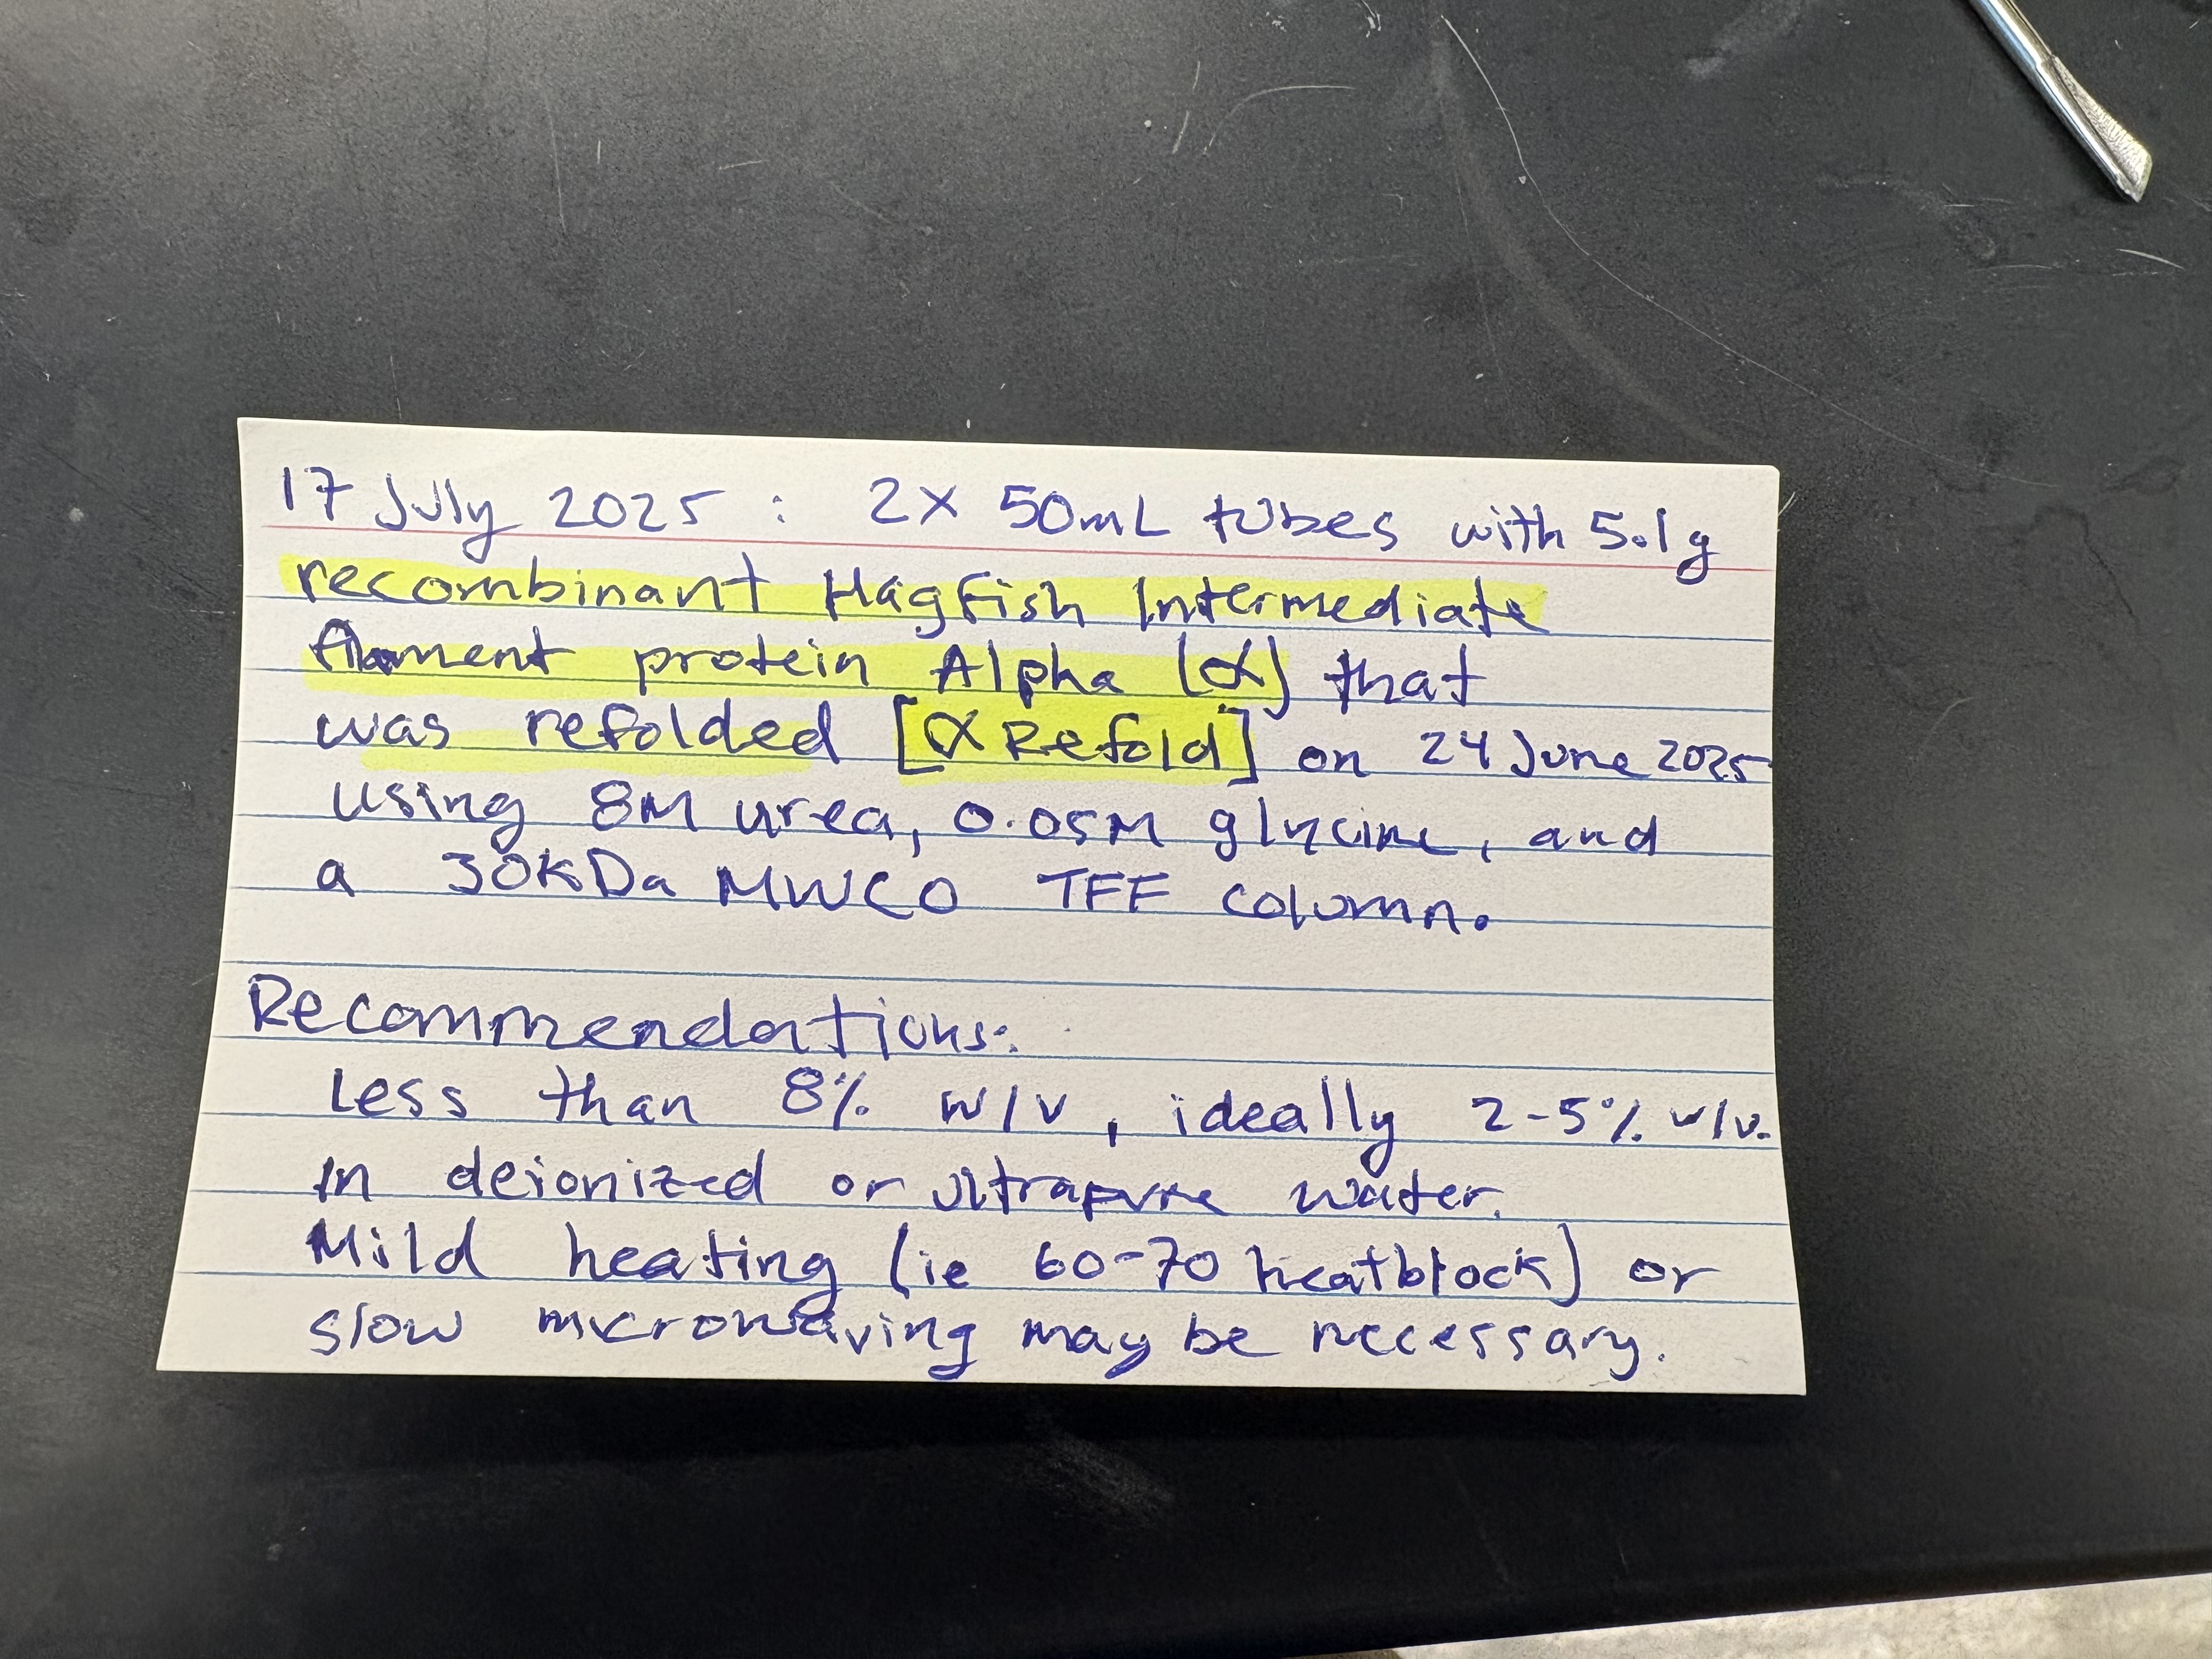 17 July 2025 : 2X 50mL tubes with 5.1g
recombinant Hagfish Intermediate
filament protein Alpha (α) that
was refolded [α Refold] on 24 June 2025
using 8M urea, 0.05M glycine, and
a 30kDa MWCO TFF column.
Recommendations:
Less than 8% w/v, ideally 2-5% w/v.
in deionized or ultrapure water.
Mild heating (ie 60-70 heatblock) or
slow microwaving may be necessary.